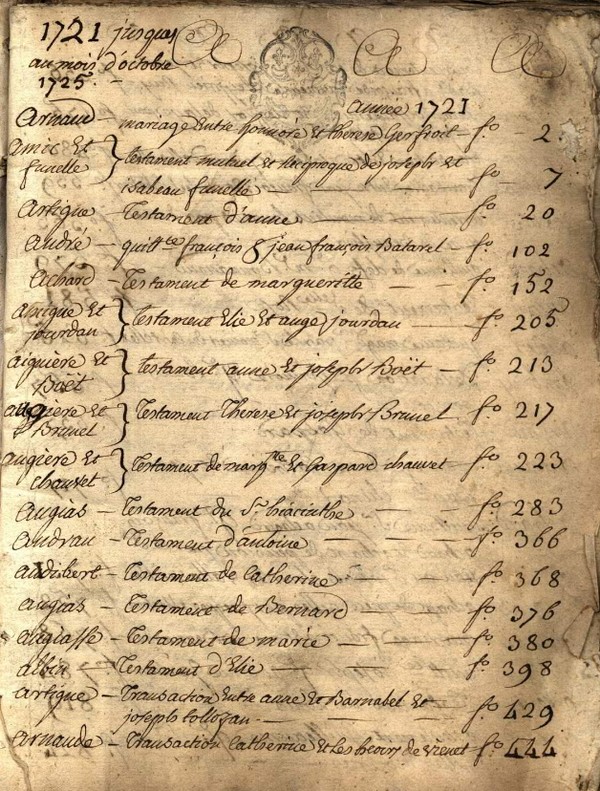 1721 jusques
au mois d'octobre
1725. -
A A A
année 1721
Arnaud - mariage Entre honnoré et therese Gerfroit - fo. 2
Amic Et funelle } testament mutuel et reciproque de joseph et
isabeau funelle - fo. 7
Artigue - Testament d'anne - fo. 20
André - quittce françois & jean françois Batarel - fo. 102
Achard - Testament de margueritte - fo. 152
Amique Et jourdan } testament Elie Et auge jourdan - fo. 205
aiguiere Et Boët } testament anne et joseph Boët - fo. 213
augiere et Brunel } Testament Therese Et joseph Brunel fo. 217
augiere Et chauvet } testament de margte Et Gaspard chauvet - fo. 223
Augias - Testament du Sr. hiacinthe - fo. 283
Andrau - Testament d'antoine - fo. 366
audibert - Testament de Catherine - fo. 368
augias - Testament de Bernard - fo. 376
augiasse - Testament de marie - fo. 380
albin - Testament d'Elie - fo. 398
artigue - Transaction Entre anne Et Barnabel Et
joseph - fo. 429
Arnaude - Transaction Catherine et Les hoirs de fo. 444